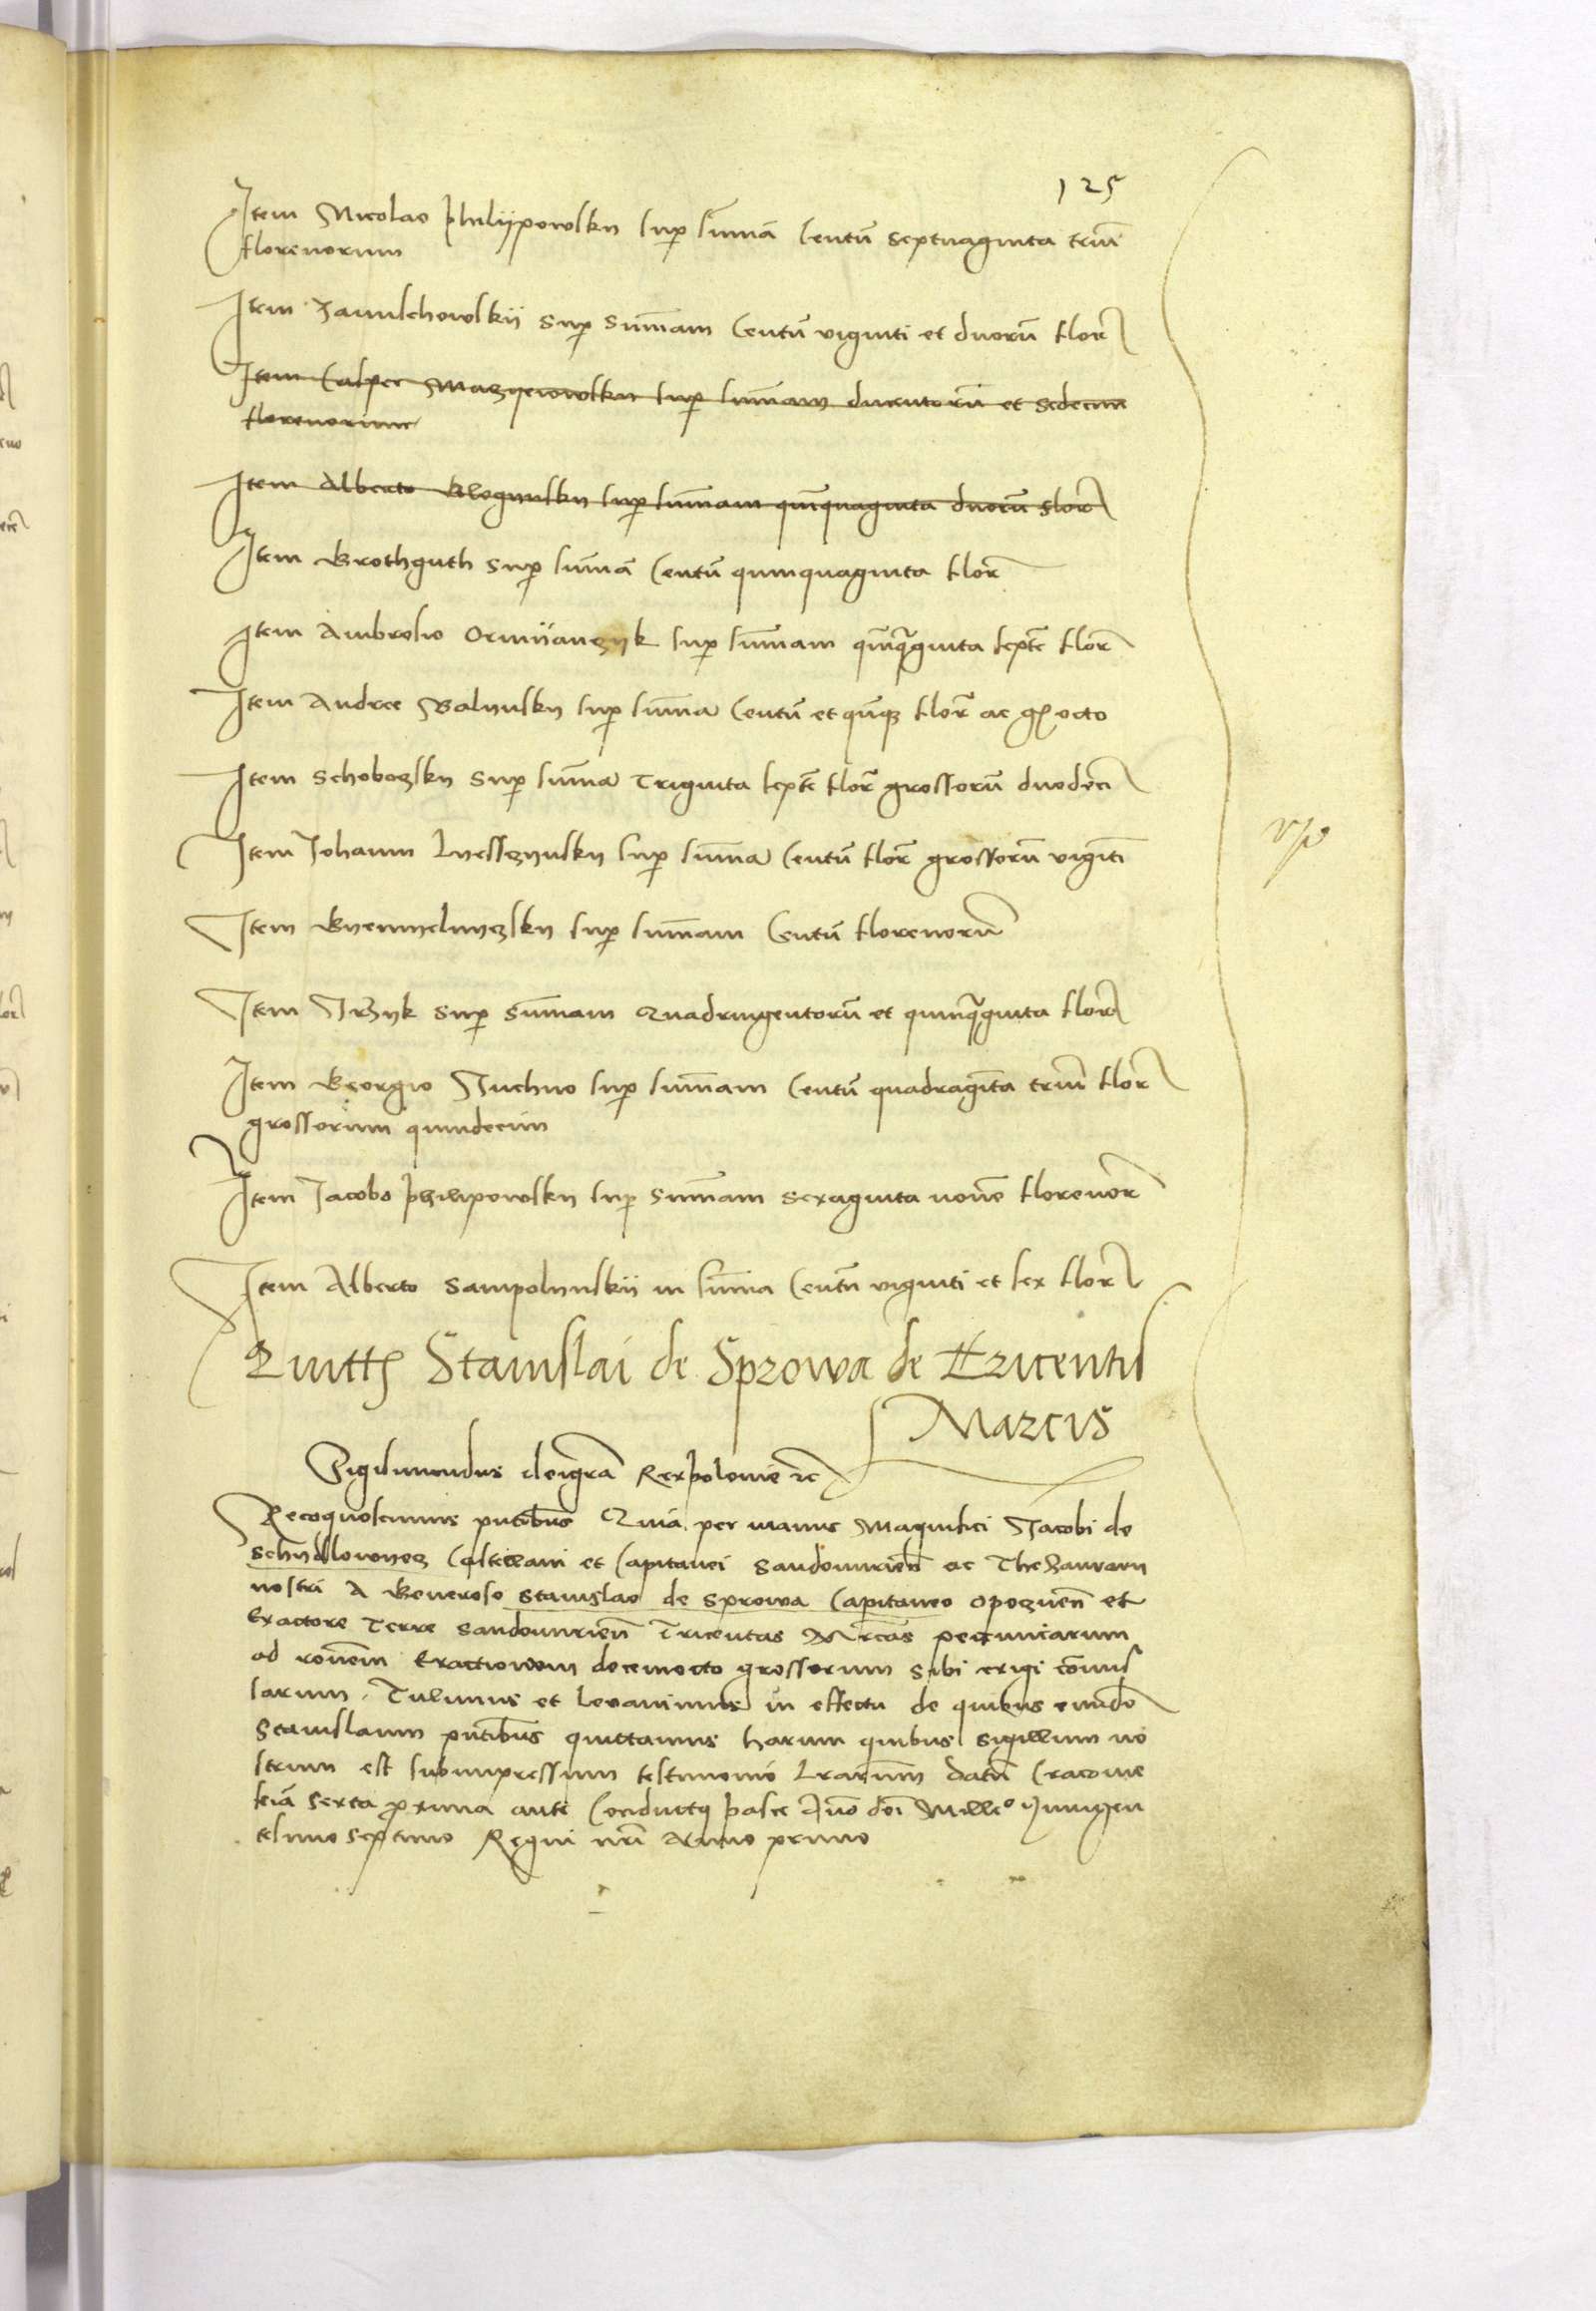 125
Item Nicolao philijpowsky sup sūmā Centū septuaginta triū
florenorum
Item Janulchowskij sup sūmam Centū viginti et duorū flor
Item Casper Maszyeiowsky sup sūmam ducentorū et sedecim
florenorum
Item Alberto Glognisky sup sūmam quīquaginta duorū flor
Item Grothguth sup sūmā Centū quinquaginta flor
Item Ambrosio Ormijanszyk sup sūmam quīqginta septē flor
Item Andree Balynsky sup sūma Centū et quīq flor ac gr octo
Item Schoboszky sup sūma Triginta septē flor grossorū duodeci
Item Johanni Lyesszynsky sup sūma Centū flor grossorū vigīti
Item sup sūmam Centū florenorū
Item Jrzyk sup sūmam Quadringentorū et quinqginta flor
Item Georgio Juchno sup sūmam Centū quadragīta triū flor
grossorum quindecim
Item Jacobo philipowsky sup summam sexaginta novē florenor
Item Alberto Sampolynskij in sūma Centū viginti et sex flor
Quitt Stanislai de Sprowa de Tricentis
Marcis
Sigismundus dei grā Rex polonie rc
Recognoscimus pntibus Quia per manus Magnifici Jacobi de
Schydlowyecz Castellani et Capitanei Sandomirien ac Thesaurarii
nostri A Generoso Stanislao de Sprowa Capitaneo Opocznen et
Exactore Terre Sandomirien Tricentas Mrcas pecuniarum
ad rōnem Exactionum decemocto grossorum sibi exigi cōmis
sarum Tulimus et levavimus in effectu de quibus eundē
Stanislaum pntibus quittamus harum quibus sigillum no
strum est subimpressum testimonio lrarum datū Cracovie
feria sexta proxima ante Conductus pasce Año dñi Mille° Quingen
tesimo septimo Regni nrī Anno primo